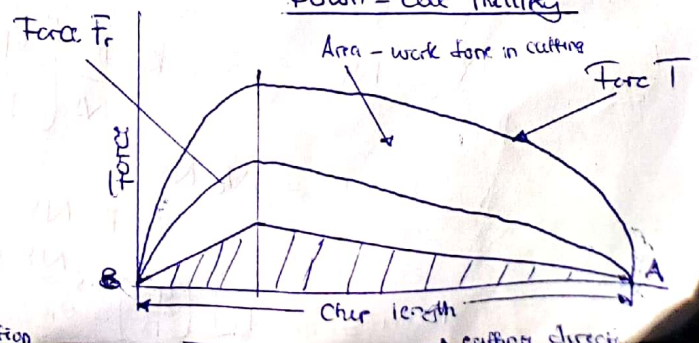 Down - Cut Milling
Force Fr
Area - work done in cutting
Force T
Force
B
A
Chip length
tion
cutting directi